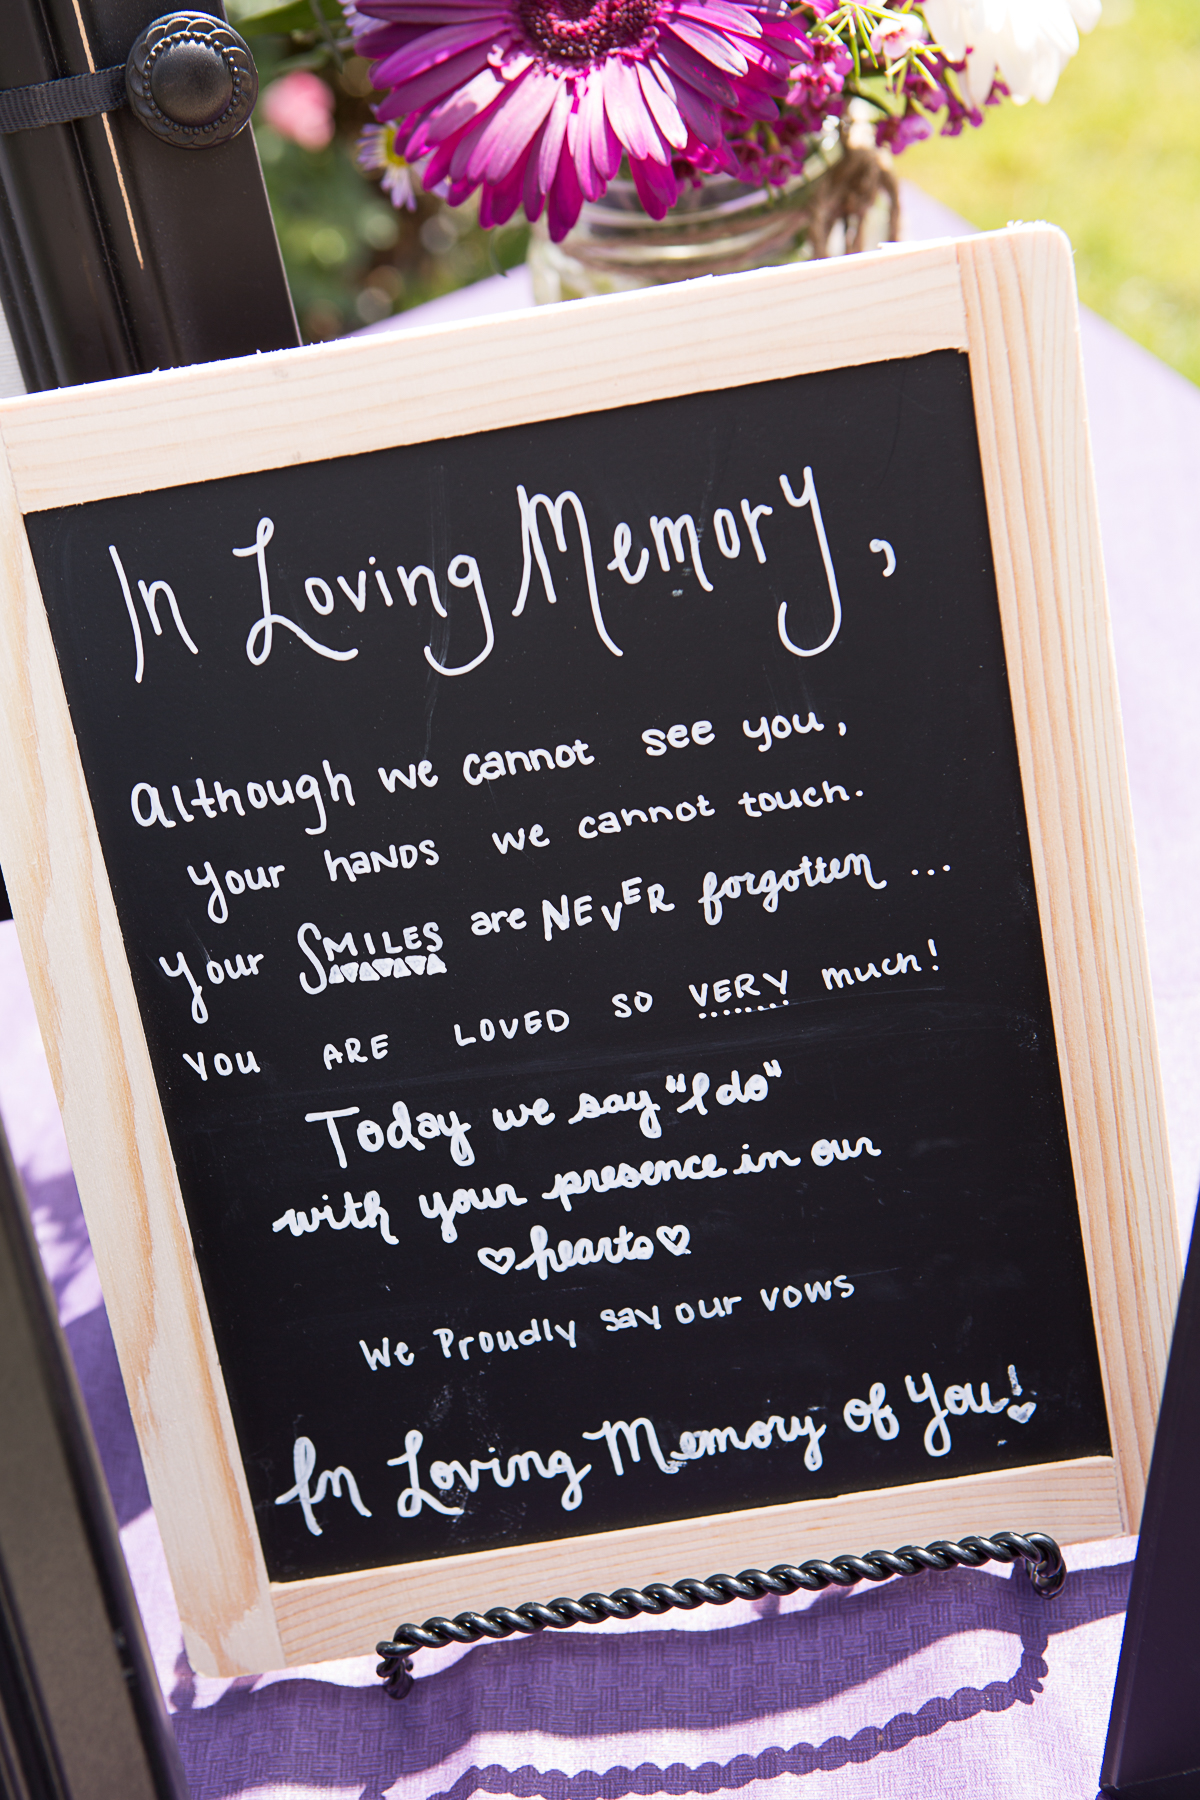 In Loving Memory,
Although we cannot see you,
Your haNDS we cannot touch.
Your SMILES are NEVER forgotten ...
YOU ARE LOVED SO VERY much!
Today we say "I do"
with your presence in our
♡hearts♡
We Proudly say our vows
In Loving Memory of You!